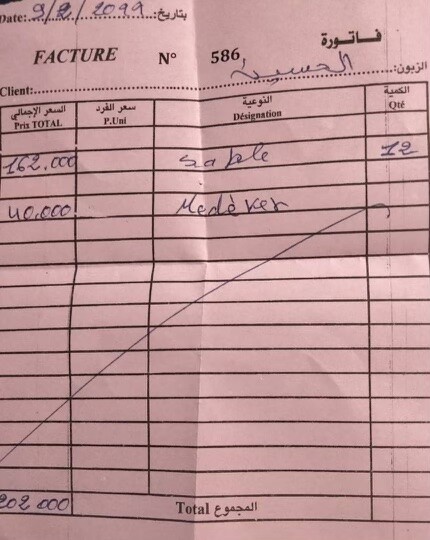 Date: 9/2/2099 بتاريخ:
FACTURE N° 586 فاتورة
Client: الزبون:
السعر الإجمالي سعر الفرد النوعية الكمية
Prix TOTAL P.Uni Désignation Qté
162.000 sable 12
40.000
202 000 Total المجموع